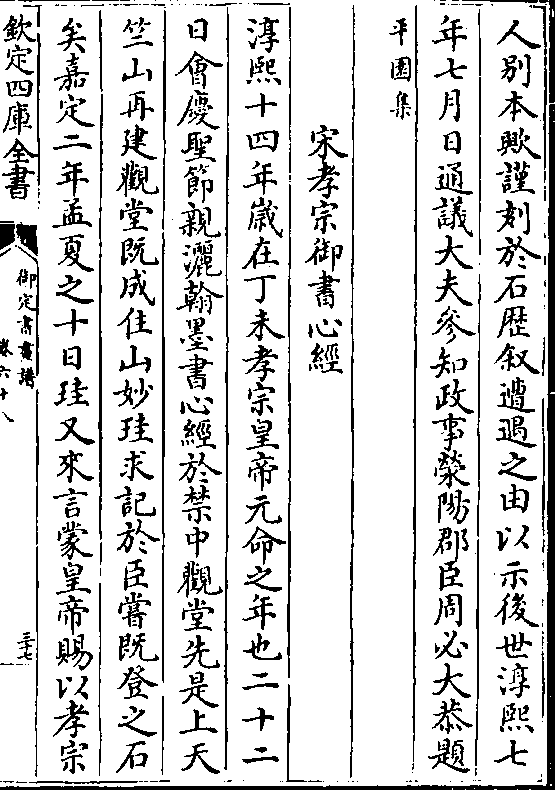 人别本歟謹刻於石歴叙遭遇之由以示後世淳熙七
年七月日通議大夫參知政事滎陽郡臣周必大恭題
平園集
宋孝宗御書心經
淳熙十四年歳在丁未孝宗皇帝元命之年也二十二
日會慶聖節親灑翰墨書心經於禁中觀堂先是上天
竺山再建觀堂既成住山妙珪求記於臣嘗既登之石
矣嘉定二年孟夏之十日珪又來言蒙皇帝賜以孝宗
欽定四庫全書
御定書畫譜
卷六十八
三十七